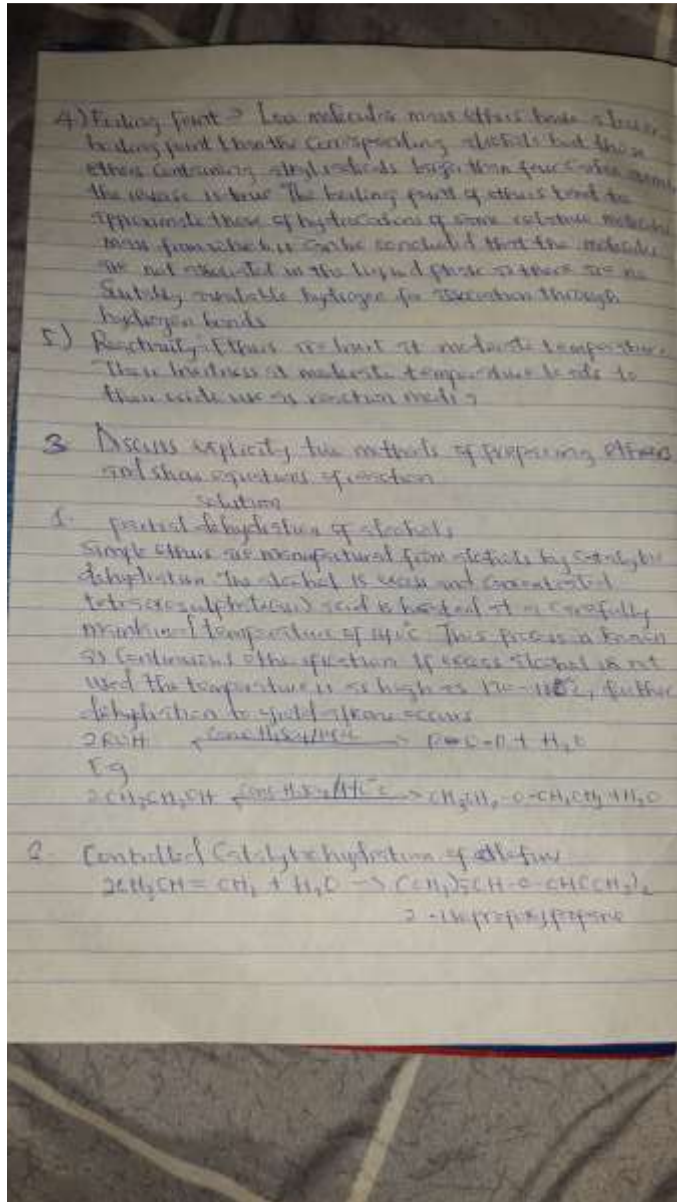 4) Boiling point → Low molecular mass ethers have a lower
boiling point than the corresponding alcohols but those
ethers containing alkyl radicals larger than four carbon atoms
the reverse is true. The boiling point of ethers tend to
approximate those of hydrocarbons of same relative molecular
mass from which it can be concluded that the molecules
are not associated in the liquid phase as there are no
Suitably available hydrogen for association through
hydrogen bonds
5) Reactivity: Ethers are inert at moderate temperature.
Their inertness at moderate temperature leads to
their wide use as reaction media
3 Discuss explicity two methods of preparing ethers
and show equations of reaction
solution
1. partial dehydration of alcohols
Simple ethers are manufactured from alcohols by catalytic
dehydration The alcohol is excess and concentrated
tetraoxosulphate(vi) acid is heated at a carefully
maintained temperature of 140°C. This process is known
as continuous etherification. If excess alcohol is not
used the temperature is as high as 170-180°C, further
dehydration to yield alkene occurs
2ROH Conc H2SO4/140°C → R-O-R + H2O
Eg
2CH3CH2OH Conc H2SO4/140°C → CH3CH2-O-CH2CH3 + H2O
2. Controlled Catalytic hydration of olefins
2CH3CH=CH2 + H2O → (CH3)2CH-O-CH(CH3)2
2-isopropoxypropane